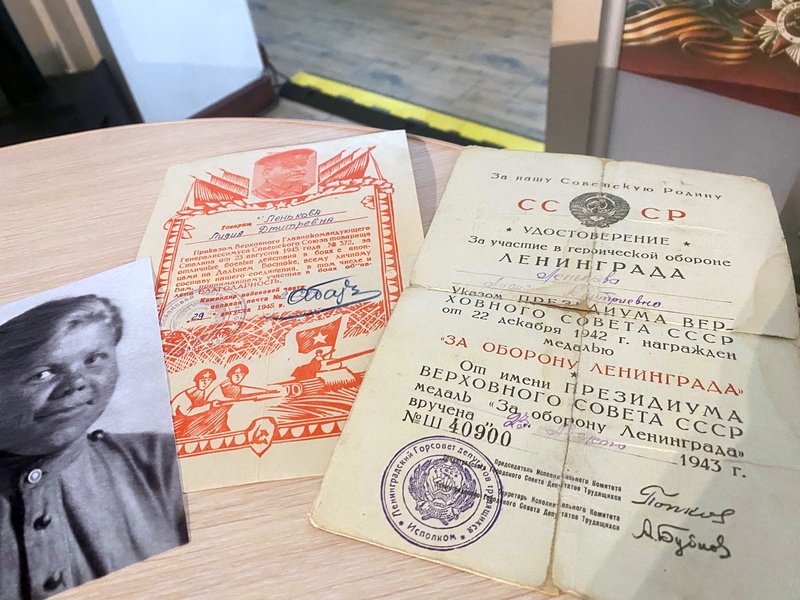 Товарищ Пенькова
Лидия Дмитревна
Приказом Верховного Главнокомандующего
Генералиссимуса Советского Союза товарища
Сталина от 23 августа 1945 года № 372, за
отличные боевые действия в боях с япон-
цами на Дальнем Востоке, всему личному
составу нашего соединения, в том числе и
Вам, принимавшему участие в боях об'яв-
лена БЛАГОДАРНОСТЬ.
Командир войсковой части
полевой почте №
29 августа 1945 г.
За нашу Советскую Родину
СС СР
УДОСТОВЕРЕНИЕ
За участие в героической обороне
ЛЕНИНГРАДА
Указом ПРЕЗИДИУМА ВЕР-
ХОВНОГО СОВЕТА СССР
от 22 декабря 1942 г. награжден
медалью
"ЗА ОБОРОНУ ЛЕНИНГРАДА"
От имени ПРЕЗИДИУМА
ВЕРХОВНОГО СОВЕТА СССР
медаль «За оборону Ленинграда»
вручена 1943 г.
№ Ш 40900
Председатель Исполнительного Комитета
Ленинградского Городского Совета Депутатов Трудящихся
Попков
Секретарь Исполнительного Комитета
Ленинградского Городского Совета Депутатов Трудящихся
А. Бубнов
Ленинградский Горсовет депутатов трудящихся
Исполком